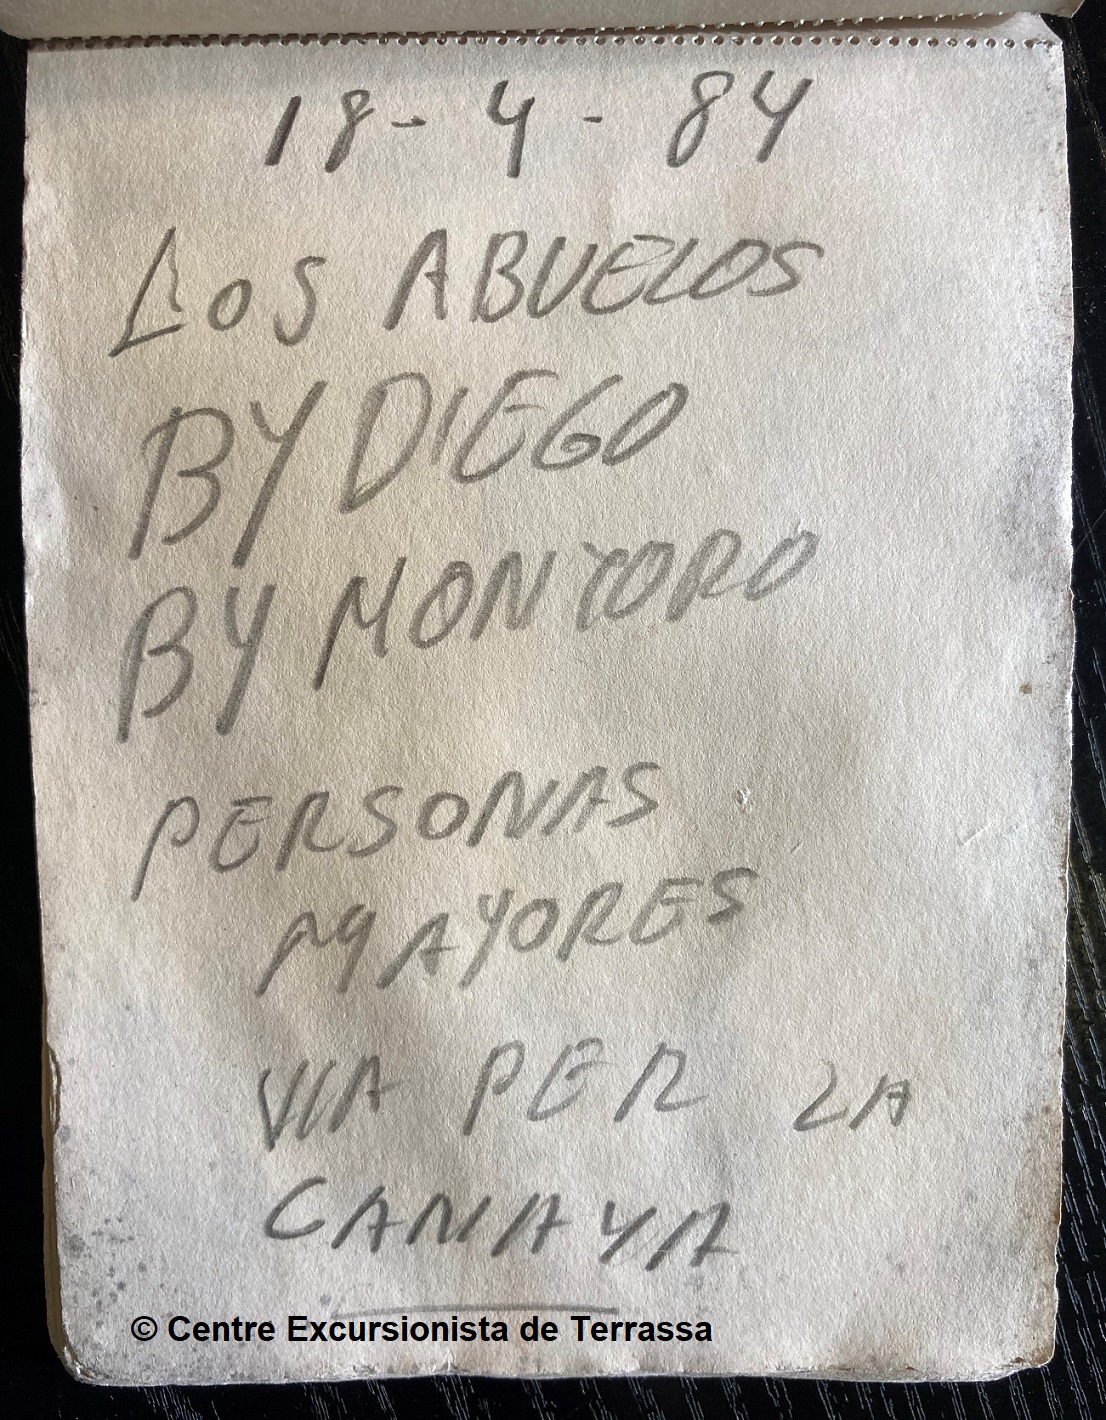 18-4-84
LOS ABUELOS
BY DIEGO
BY MONTORO
PERSONAS
MAYORES
VIA PER LA
CANAYA
© Centre Excursionista de Terrassa